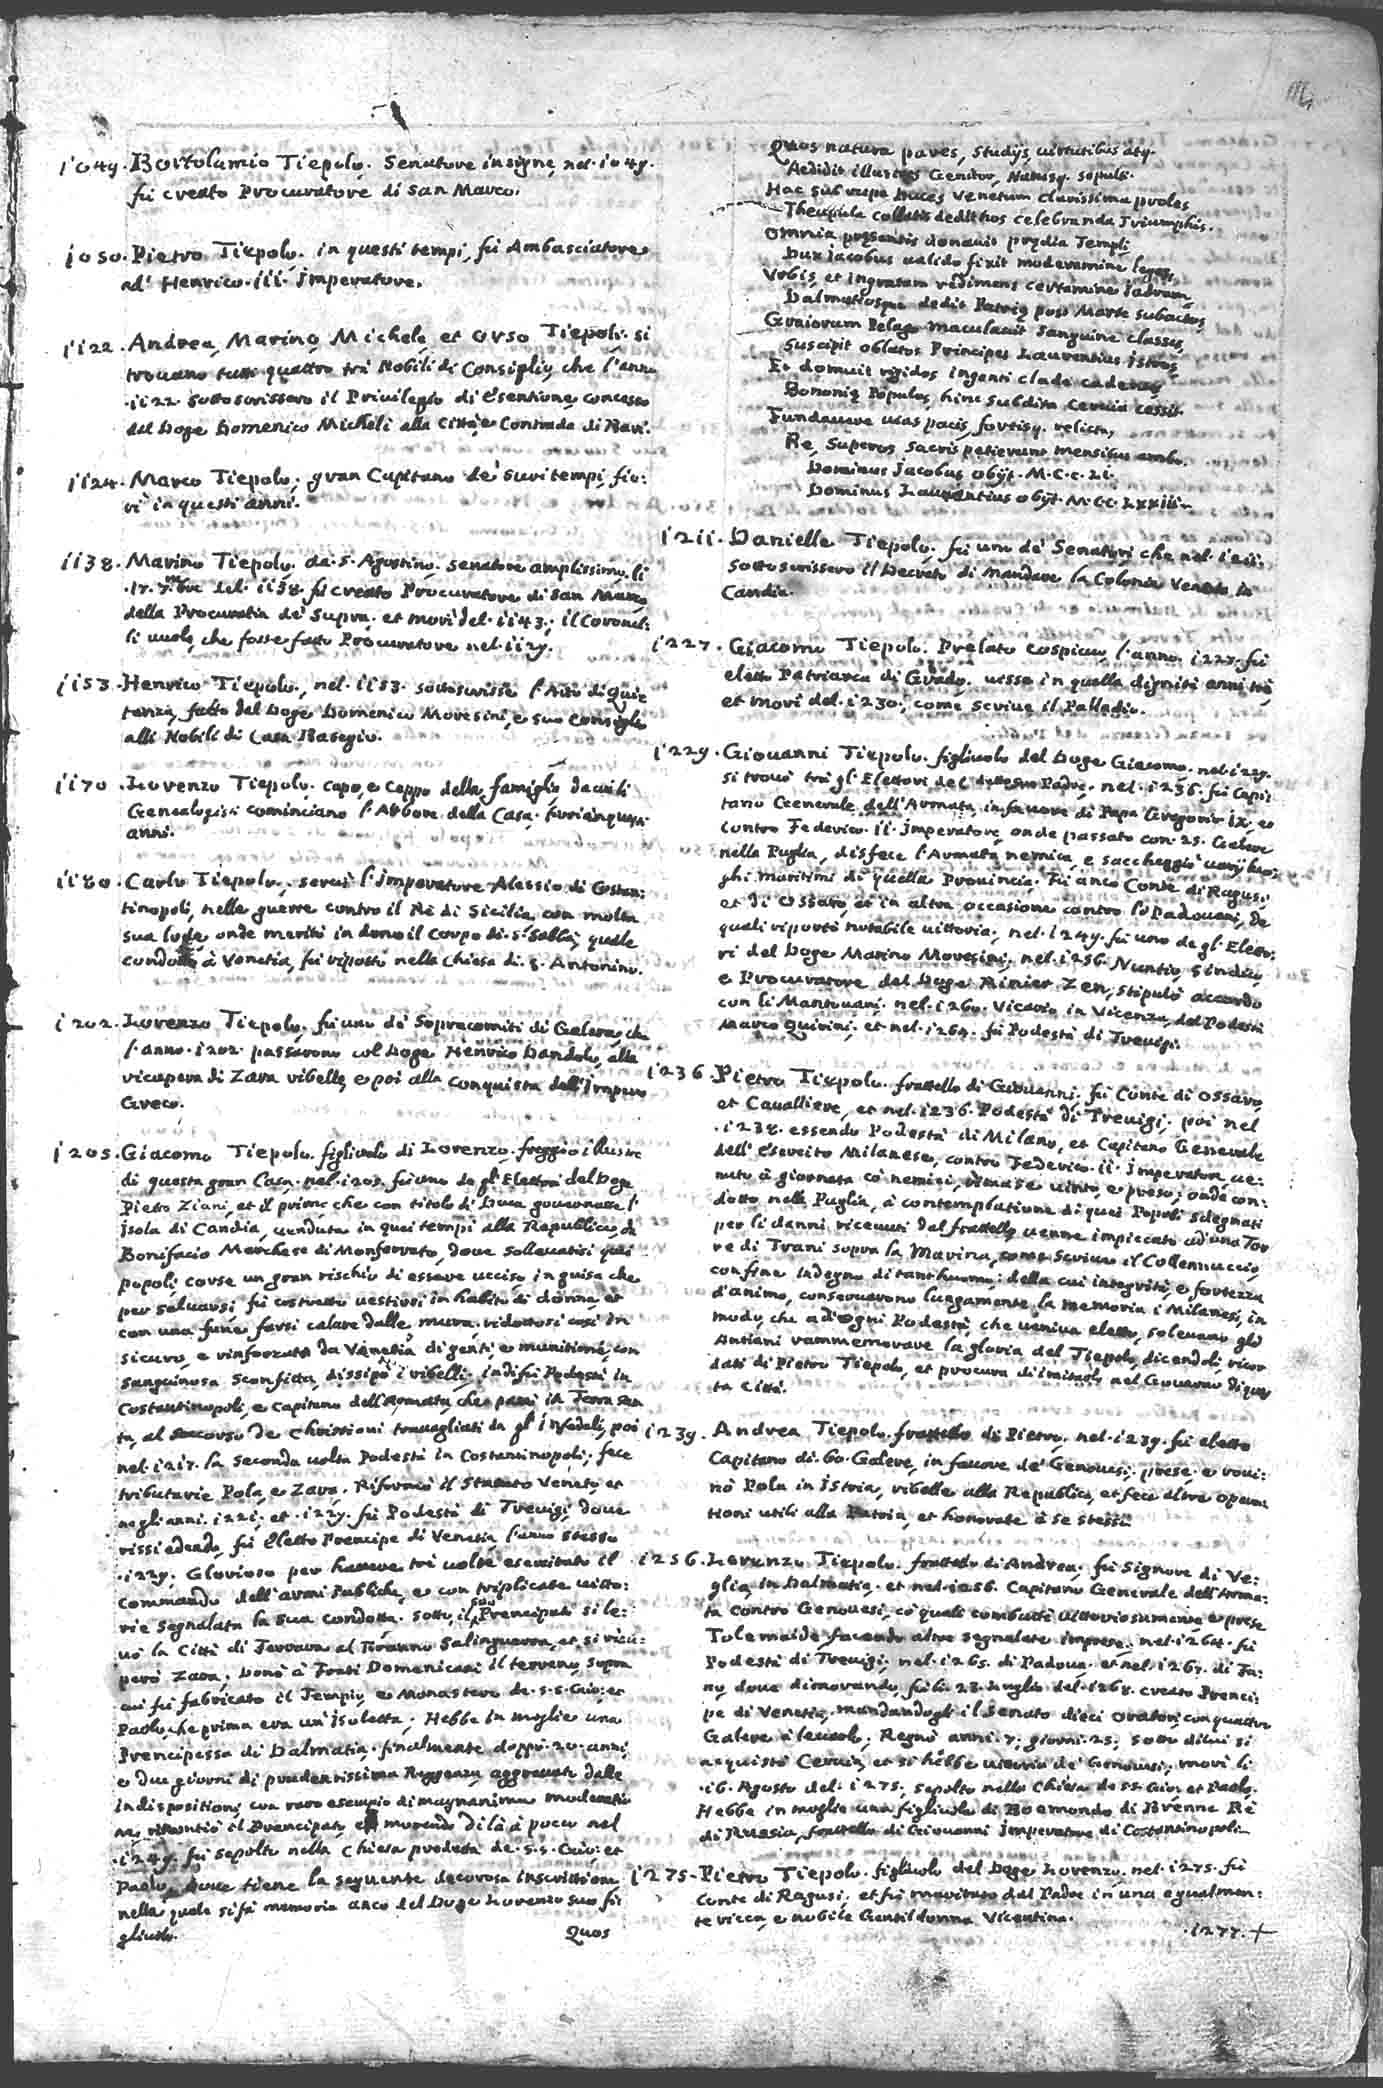 1049. Bortolamio Tiepolo. Senatore insigne, nel. 1049.
fù creato Procuratore di San Marco.
1050. Pietro Tiepolo. in questi tempi, fù Ambasciatore
ad' Henrico. iii. imperatore.
1122. Andrea, Marino, Michele, et Orso Tiepoli. si
trouano tutti quattro trà Nobili di Consiglio, che l'anno
.1122. sottoscrissero il Priuilegio di esentione, concesso
dal Doge Domenico Micheli alla Città, e Contrada di Bari.
1124. Marco Tiepolo, gran Capitano de' suoi tempi, fio:
rì in questi anni.
1138. Marino Tiepolo da. S. Agostino. senatore amplissimo. li
.17. 9.mbre del. 1138. fù creato Procuratore di San Marco,
della Procuratia de' Supra. et morì del. 1143.; il Coronel:
li uuole, che fosse fatto Procuratore nel. 1129.
1153. Henrico Tiepolo., nel. 1153. sottoscrisse l'Atto di Quie
tanza, fatto dal Doge Domenico Moresini, e suo Consiglio
alli Nobili di Casa Basegio.
1170. Lorenzo Tiepolo. capo, e ceppo della famiglia da cui li
Genealogisti cominciano l'Arbore della Casa, fiorì in questi
anni.
1180. Carlo Tiepolo., seruì l'imperatore Alessio di Costan:
tinopoli, nelle guerre contro il Rè di Sicilia, con molta
sua lode, onde meritò in dono il Corpo di. S. Sabba, quale
condotto à Venetia, fù riposto nella Chiesa di. S. Antonino.
1202. Lorenzo Tiepolo, fù uno de' Sopracomiti di Galera, che
l'anno. 1202. passarono col Doge Henrico Dandolo, alla
ricupera di Zara ribelle, e poi alla conquista dell'Impero
Greco.
1205. Giacomo Tiepolo. figliuolo di Lorenzo. freggio illustre
di questa gran Casa. nel. 1205. fù uno de gl'Elettori del Doge
Pietro Ziani, et il primo che con titolo di Duca gouernasse l'
isola di Candia, uenduta in quei tempi alla Republica, da
Bonifacio Marchese di Monferrato, doue solleuatisi quei
popoli, corse un gran rischio di essere ucciso, in guisa che
per saluarsi fù costretto uestirsi in habito di donna, et
con una fune farsi calare dalle mura. ridottosi così in
sicuro, e rinforzato da Venetia di genti, e munitioni, con
sanguinosa sconfitta, dissipò i ribelli. indi fù Podestà in
Costantinopoli, e Capitano dell'Armata, che passò in Terra San
ta, al soccorso de Christiani trauagliati da gl'infedeli, poi
nel. 1217. la seconda uolta Podestà in Costantinopoli. fece
tributarie Pola, e Zara. Riformò il Statuto Veneto, et
negl'anni. 1221. et. 1229. fù Podestà di Treuigi, doue
rissiedendo, fù eletto Prencipe di Venetia l'anno stesso
.1229. Glorioso per hauere trè uolte esercitato il
commando dell'armi Publiche, e con triplicate uitto:
rie segnalata la sua condotta. sotto il suo Prencipato si le:
uò la Città di Ferrara al Tiranno Salinguerra, et si ricu:
però Zara. Donò à Frati Domenicani il terreno, sopra
cui fù fabricato il Tempio, e Monastero de. S.S. Gio: et
Paolo, che prima era un'isoletta. Hebbe in moglie una
Prencipessa di Dalmatia. finalmente doppò. 20. anni,
e due giorni di prudentissima Reggenza, aggrauato dalle
indispositioni, con raro esempio di magnanima moderatio
ne, rinontiò il Prencipato, et morendo di là à poco nel
.1249. fù sepolto nella Chiesa predetta de. S.S. Gio: et
Paolo, doue tiene la seguente decorosa inscrittione
nella quale si fà memoria anco del Doge Lorenzo suo fi:
gliuolo.
Quos
Quos natura pares, studijs, uirtutibus atq.
Aedidit illustres Genitor, Natusq. sepulti.
Hac sub rupe Duces Venetum clarissima proles
Theupula collatis dedit hos celebranda Triumphis.
Omnia presentis donauit predia Templi
Dux Jacobus ualido fixit moderamine leges,
Vrbis, et ingratam redimens certamine Jadram,
Dalmatiosque dedit Patrie post Marte subactos
Graiorum Pelago maculauit sanguine classes,
Suscipit oblatos Princeps Laurentius istros,
Et domuit rigidos ingenti clade cadentes
Bononie Populos, hinc subdita Ceruia cessit.
Fundauere uias pacis, fortisq. relicta,
Re, superos sacris petierunt mensibus ambo.
Dominus Jacobus obijt. M.C.c.Li.
Dominus Laurentius obijt. M.CC.LXXiii.
1211. Danielle Tiepolo. fù uno de' Senatori che nel. 1211.
sottoscrissero il Decreto di mandare la Colonia Veneta in
Candia.
1227. Giacomo Tiepolo. Prelato cospicuo, l'anno. 1227. fù
eletto Patriarca di Grado. uisse in quella dignità anni trè,
et morì del. 1230., come scriue il Palladio.
1229. Giouanni Tiepolo. figliuolo del Doge Giacomo. nel. 1229.
si trouò trà gl'Elettori del detto suo Padre. nel. 1236. fù Capi:
tano Generale dell'Armata, in fauore di Papa Gregorio ix, et
contro Federico. ii. imperatore, onde passato con. 25. Galere
nella Puglia, disfece l'Armata nemica, e saccheggiò uarij luo:
ghi maritimi di quella Prouincia. Fù anco Conte di Ragusi,
et di Ossaro, et in altra occasione contro li Padouani, de
quali riportò notabile uittoria., nel. 1249. fù uno de gl'Eletto:
ri del Doge Marino Moresini. nel. 1256. Nuntio, Sindico,
e Procuratore del Doge Rinier Zen, stipulò accordo
con li Mantouani. nel. 1260. Vicario in Vicenza, del Podestà
Marco Quirini. et nel. 1264. fù Podestà di Treuigi.
1236. Pietro Tiepolo. fratello di Giouanni. fù Conte di Ossaro,
et Caualliere, et nel. 1236. Podestà di Treuigi. poi nel
.1238. essendo Podestà di Milano, et Capitano Generale
dell'esercito Milanese, contro Federico. ii. imperatore ue:
nuto à giornata cò nemici, rimase uinto, e preso; onde con:
dotto nella Puglia, à contemplatione di quei Popoli sdegnati
per li danni, riceuuti dal fratello, uenne impiccato ad una Tor
re di Trani sopra la Marina, come scriue il Collenuccio,
con fine indegno di tant'huomo: della cui integrità, e fortezza
d'animo, conseruarono lungamente la memoria i Milanesi, in
modo, che ad'ogni Podestà, che ueniua eletto, soleuano gli
Antiani rammemorare la gloria del Tiepolo, dicendoli ricor
dati di Pietro Tiepolo, et procura di imitarlo nel Gouerno di ques
ta Città.
1239. Andrea Tiepolo. fratello di Pietro, nel. 1239. fù eletto
Capitano di. 60. Galere, in fauore de' Genouesi. prese, e roui:
nò Pola in Istria, ribelle alla Republica, et fece altre opera
tioni utili alla Patria, et honorate à se stesso.
1256. Lorenzo Tiepolo. fratello di Andrea, fù Signore di Ve:
glia in Dalmatia. et nel. 1256. Capitano Generale dell'Arma:
ta contro Genouesi, cò quali combattè uittoriosamente, e prese
Tolemaide, facendo altre segnalate imprese. nel. 1264. fù
Podestà di Treuigi. nel. 1265. di Padoua. et nel. 1267. di Fa:
no, doue dimorando, fù li. 23. Luglio del. 1268. creato Prenci:
pe di Venetia, mandandogli il Senato dieci Oratori, con quattro
Galere à leuarlo. Regnò anni. 7. giorni. 25. sotto di lui si
acquistò Ceruia, et si hebbe uittoria de' Genouesi, morì li
.16. Agosto del. 1275. sepolto nella Chiesa de SS. Gio: et Paolo.
Hebbe in moglie una figliuola di Boemondo di Brenne Rè
di Russia, fratello di Giouanni imperatore di Costantinopoli.
1275. Pietro Tiepolo. figliuolo del Doge Lorenzo. nel. 1275. fù
Conte di Ragusi. et fù maritato dal Padre in una egualmen:
te ricca, e nobile Gentildonna Vicentina.
.1277. +